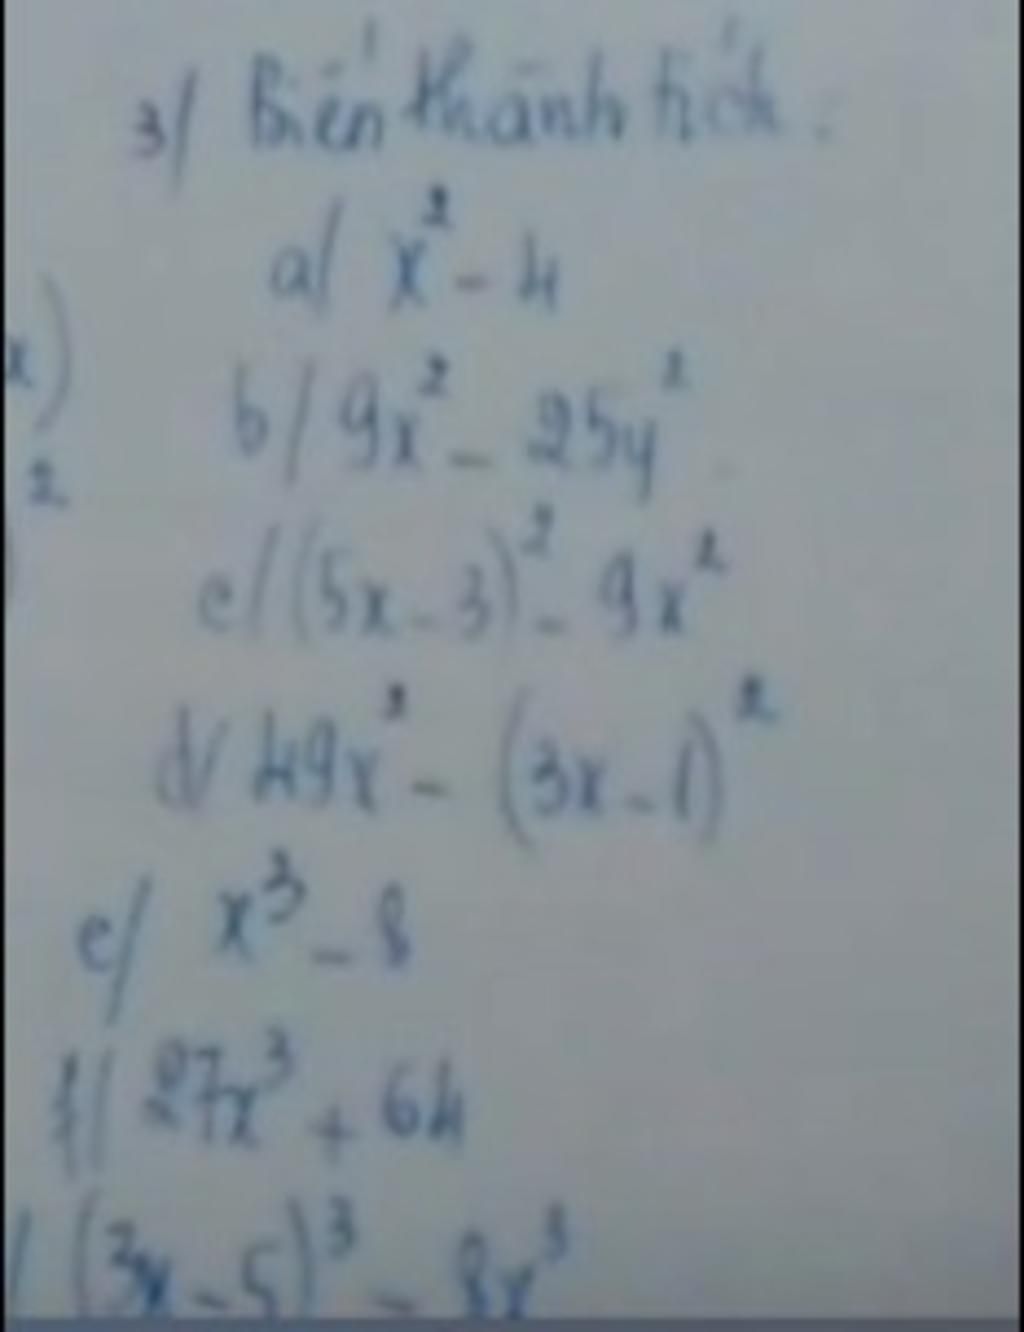 3/ Biến thành tích:
a/ x² - 4
x)
b/ 9x² - 25y²
2
c/ (5x - 3)² - 9x²
d/ 49x² - (3x - 1)²
e/ x³ - 8
f/ 27x³ + 64
/ (3x - 5)³ - 8x³